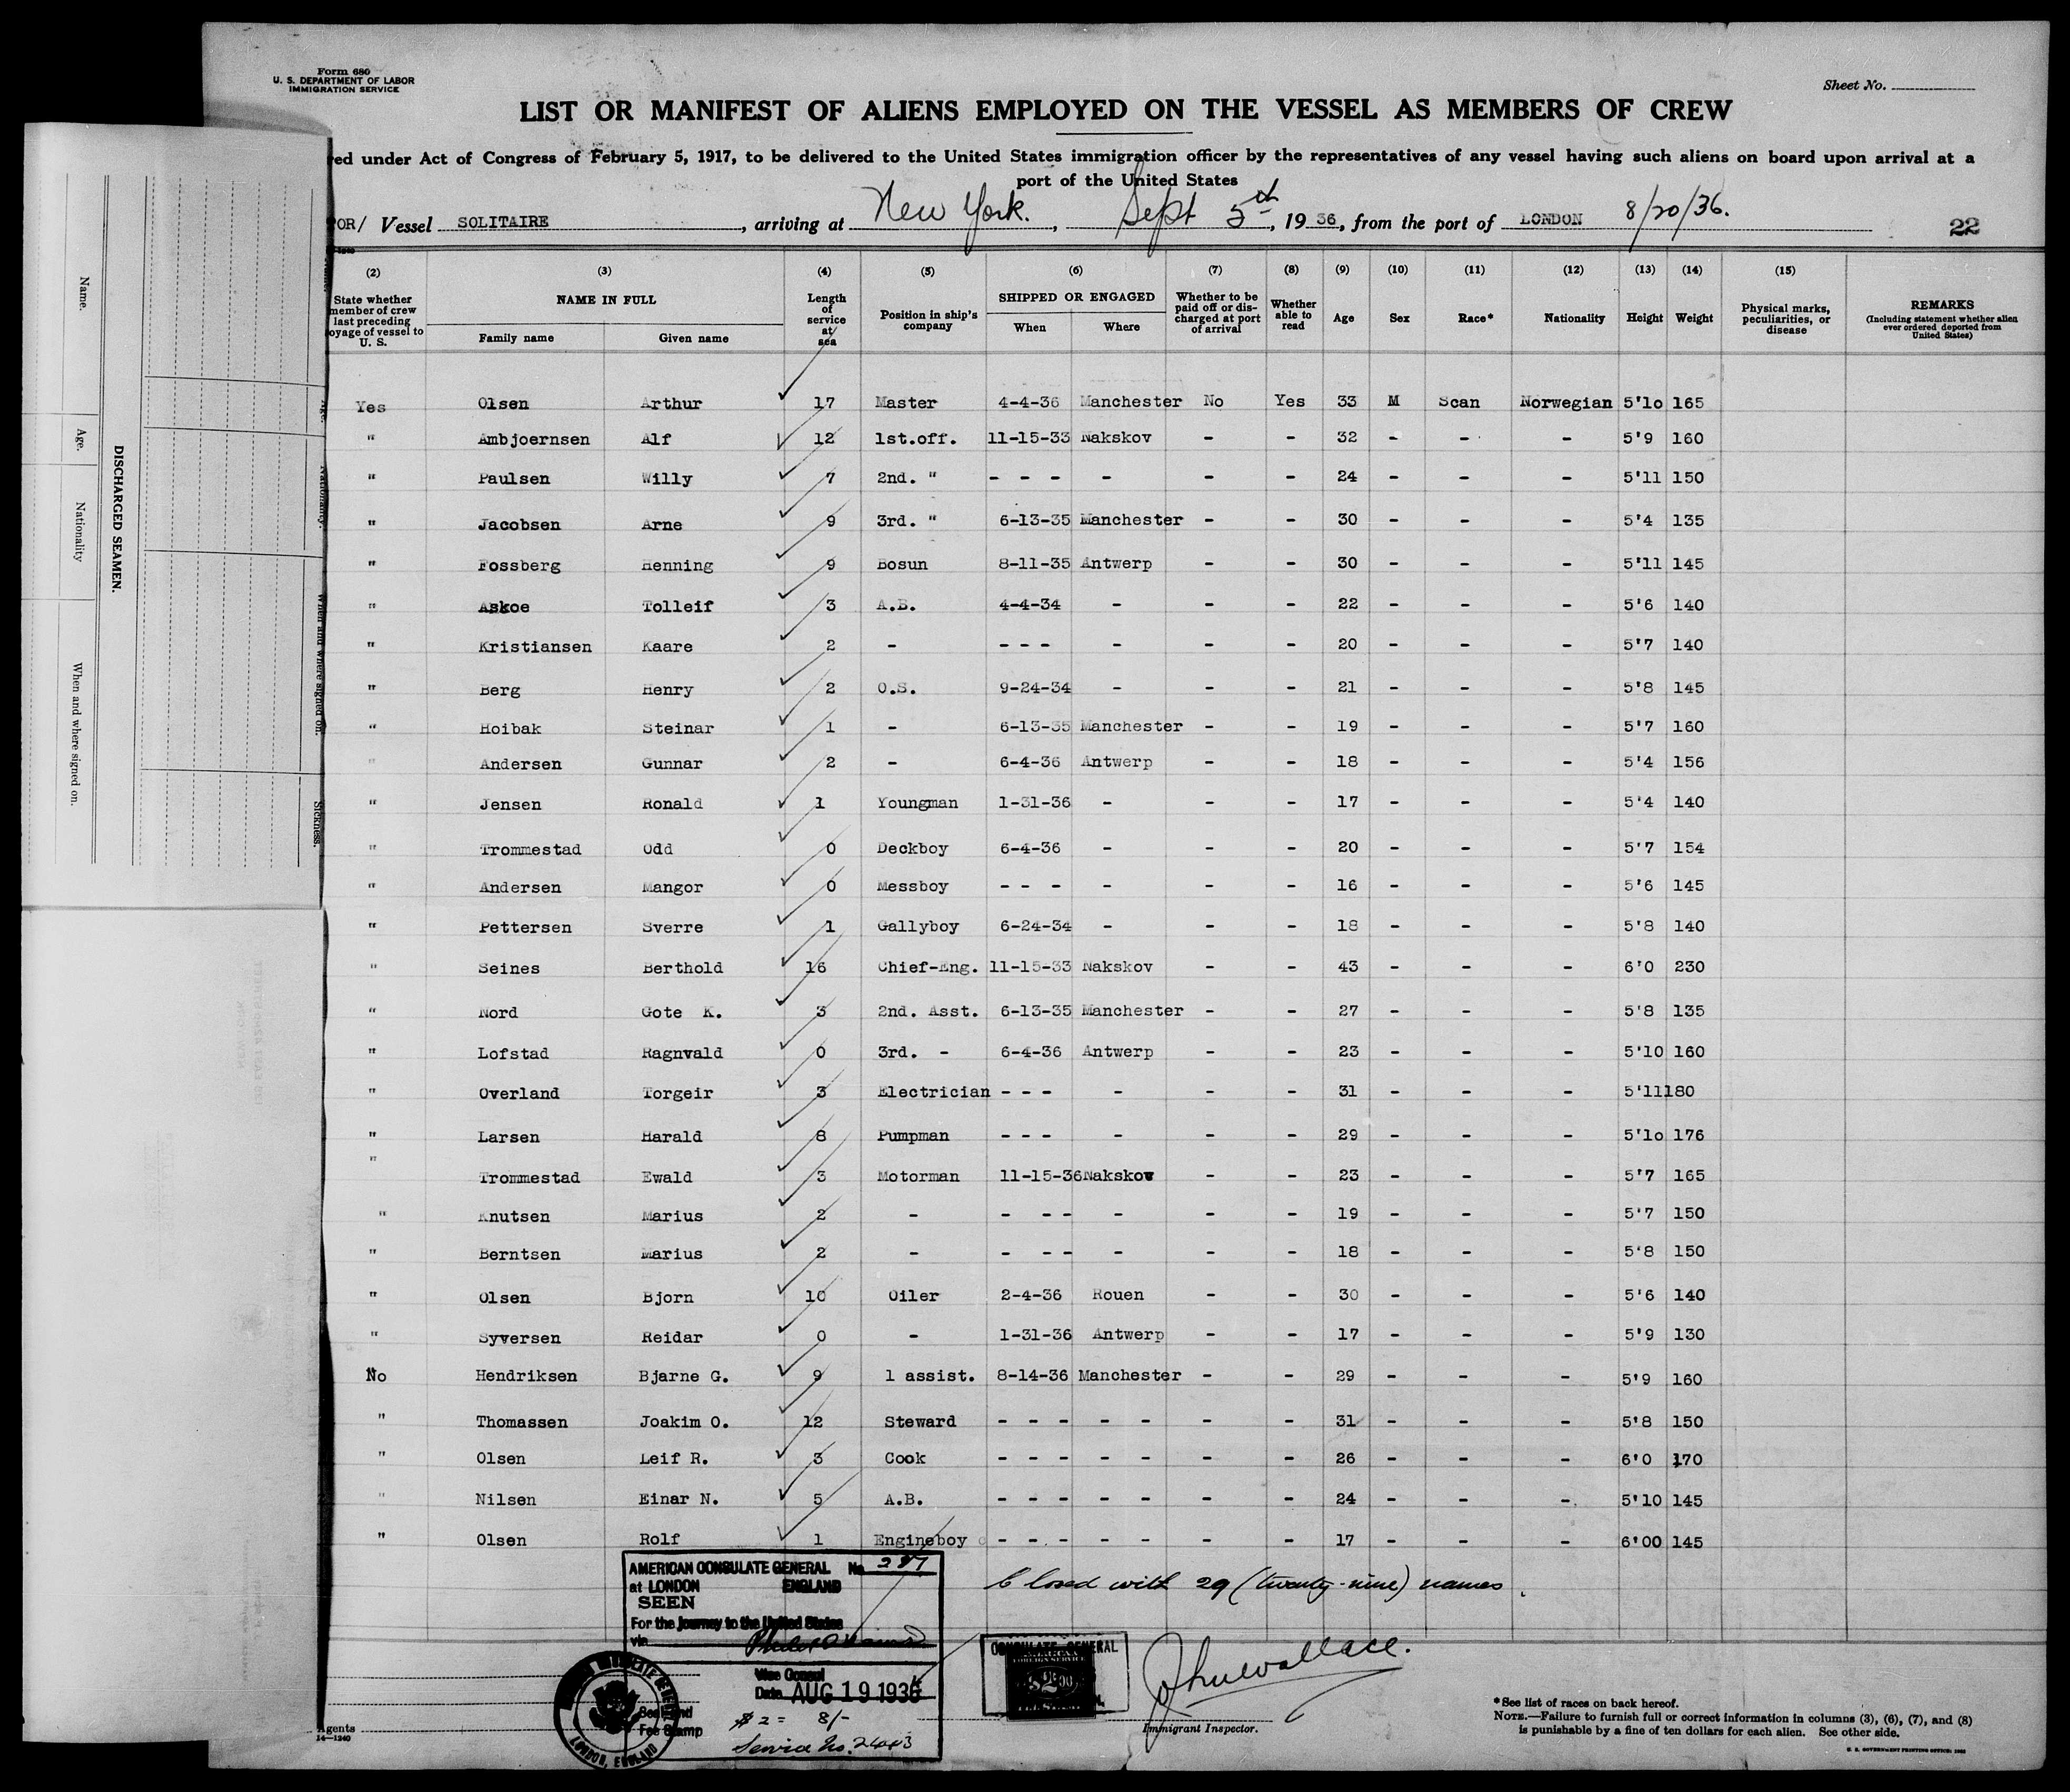 Form 680
U. S. DEPARTMENT OF LABOR
IMMIGRATION SERVICE
Sheet No.
LIST OR MANIFEST OF ALIENS EMPLOYED ON THE VESSEL AS MEMBERS OF CREW
ed under Act of Congress of February 5, 1917, to be delivered to the United States immigration officer by the representatives of any vessel having such aliens on board upon arrival at a
port of the United States
OR/ Vessel SOLITAIRE, arriving at New York., Sept 5th, 1936, from the port of LONDON 8/20/36.
22
(2) (3) (4) (5) (6) (7) (8) (9) (10) (11) (12) (13) (14) (15)
State whether member of crew last preceding oyage of vessel to U. S.
NAME IN FULL
Family name Given name
Length of service at sea
Position in ship's company
SHIPPED OR ENGAGED
When Where
Whether to be paid off or discharged at port of arrival
Whether able to read
Age Sex Race* Nationality Height Weight
Physical marks, peculiarities, or disease
REMARKS
(Including statement whether alien ever ordered deported from United States)
Yes Olsen Arthur 17 Master 4-4-36 Manchester No Yes 33 M Scan Norwegian 5'10 165
" Ambjoernsen Alf 12 1st.off. 11-15-33 Nakskov - - 32 - - - 5'9 160
" Paulsen Willy 7 2nd. " - - - - - - 24 - - - 5'11 150
" Jacobsen Arne 9 3rd. " 6-13-35 Manchester - - 30 - - - 5'4 135
" Fossberg Henning 9 Bosun 8-11-35 Antwerp - - 30 - - - 5'11 145
" Askoe Tolleif 3 A.B. 4-4-34 - - - 22 - - - 5'6 140
" Kristiansen Kaare 2 - - - - - - - 20 - - - 5'7 140
" Berg Henry 2 O.S. 9-24-34 - - - 21 - - - 5'8 145
" Hoibak Steinar 1 - 6-13-35 Manchester - - 19 - - - 5'7 160
" Andersen Gunnar 2 - 6-4-36 Antwerp - - 18 - - - 5'4 156
" Jensen Ronald 1 Youngman 1-31-36 - - - 17 - - - 5'4 140
" Trommestad Odd 0 Deckboy 6-4-36 - - - 20 - - - 5'7 154
" Andersen Mangor 0 Messboy - - - - - - 16 - - - 5'6 145
" Pettersen Sverre 1 Gallyboy 6-24-34 - - - 18 - - - 5'8 140
" Seines Berthold 16 Chief-Eng. 11-15-33 Nakskov - - 43 - - - 6'0 230
" Nord Gote K. 3 2nd. Asst. 6-13-35 Manchester - - 27 - - - 5'8 135
" Lofstad Ragnvald 0 3rd. - 6-4-36 Antwerp - - 23 - - - 5'10 160
" Overland Torgeir 3 Electrician - - - - - - 31 - - - 5'11 180
" Larsen Harald 8 Pumpman - - - - - - 29 - - - 5'10 176
" Trommestad Ewald 3 Motorman 11-15-36 Nakskov - - 23 - - - 5'7 165
" Knutsen Marius 2 - - - - - - - 19 - - - 5'7 150
" Berntsen Marius 2 - - - - - - - 18 - - - 5'8 150
" Olsen Bjorn 10 Oiler 2-4-36 Rouen - - 30 - - - 5'6 140
" Syversen Reidar 0 - 1-31-36 Antwerp - - 17 - - - 5'9 130
No Hendriksen Bjarne G. 9 1 assist. 8-14-36 Manchester - - 29 - - - 5'9 160
" Thomassen Joakim O. 12 Steward - - - - - - - 31 - - - 5'8 150
" Olsen Leif R. 3 Cook - - - - - - - 26 - - - 6'0 170
" Nilsen Einar N. 5 A.B. - - - - - - - 24 - - - 5'10 145
" Olsen Rolf 1 Engineboy - - - - - - - 17 - - - 6'00 145
Closed with 29 (twenty-nine) names.
AMERICAN CONSULATE GENERAL No. 287
at LONDON ENGLAND
SEEN
For the Journey to the United States
via
Vice Consul
Date AUG 19 1936
Seal and
Fee Stamp
$2= 8/-
Service No.
LONDON, ENGLAND
CONSULATE GENERAL
AMERICAN
FOREIGN SERVICE
$2.00
John Wallace.
Immigrant Inspector.
Agents
14—1240
* See list of races on back hereof.
NOTE.—Failure to furnish full or correct information in columns (3), (6), (7), and (8)
is punishable by a fine of ten dollars for each alien. See other side.
U. S. GOVERNMENT PRINTING OFFICE:
DISCHARGED SEAMEN.
Name.
Age.
Nationality
When and where signed on.
Nationality.
When and where signed on.
Sickness.